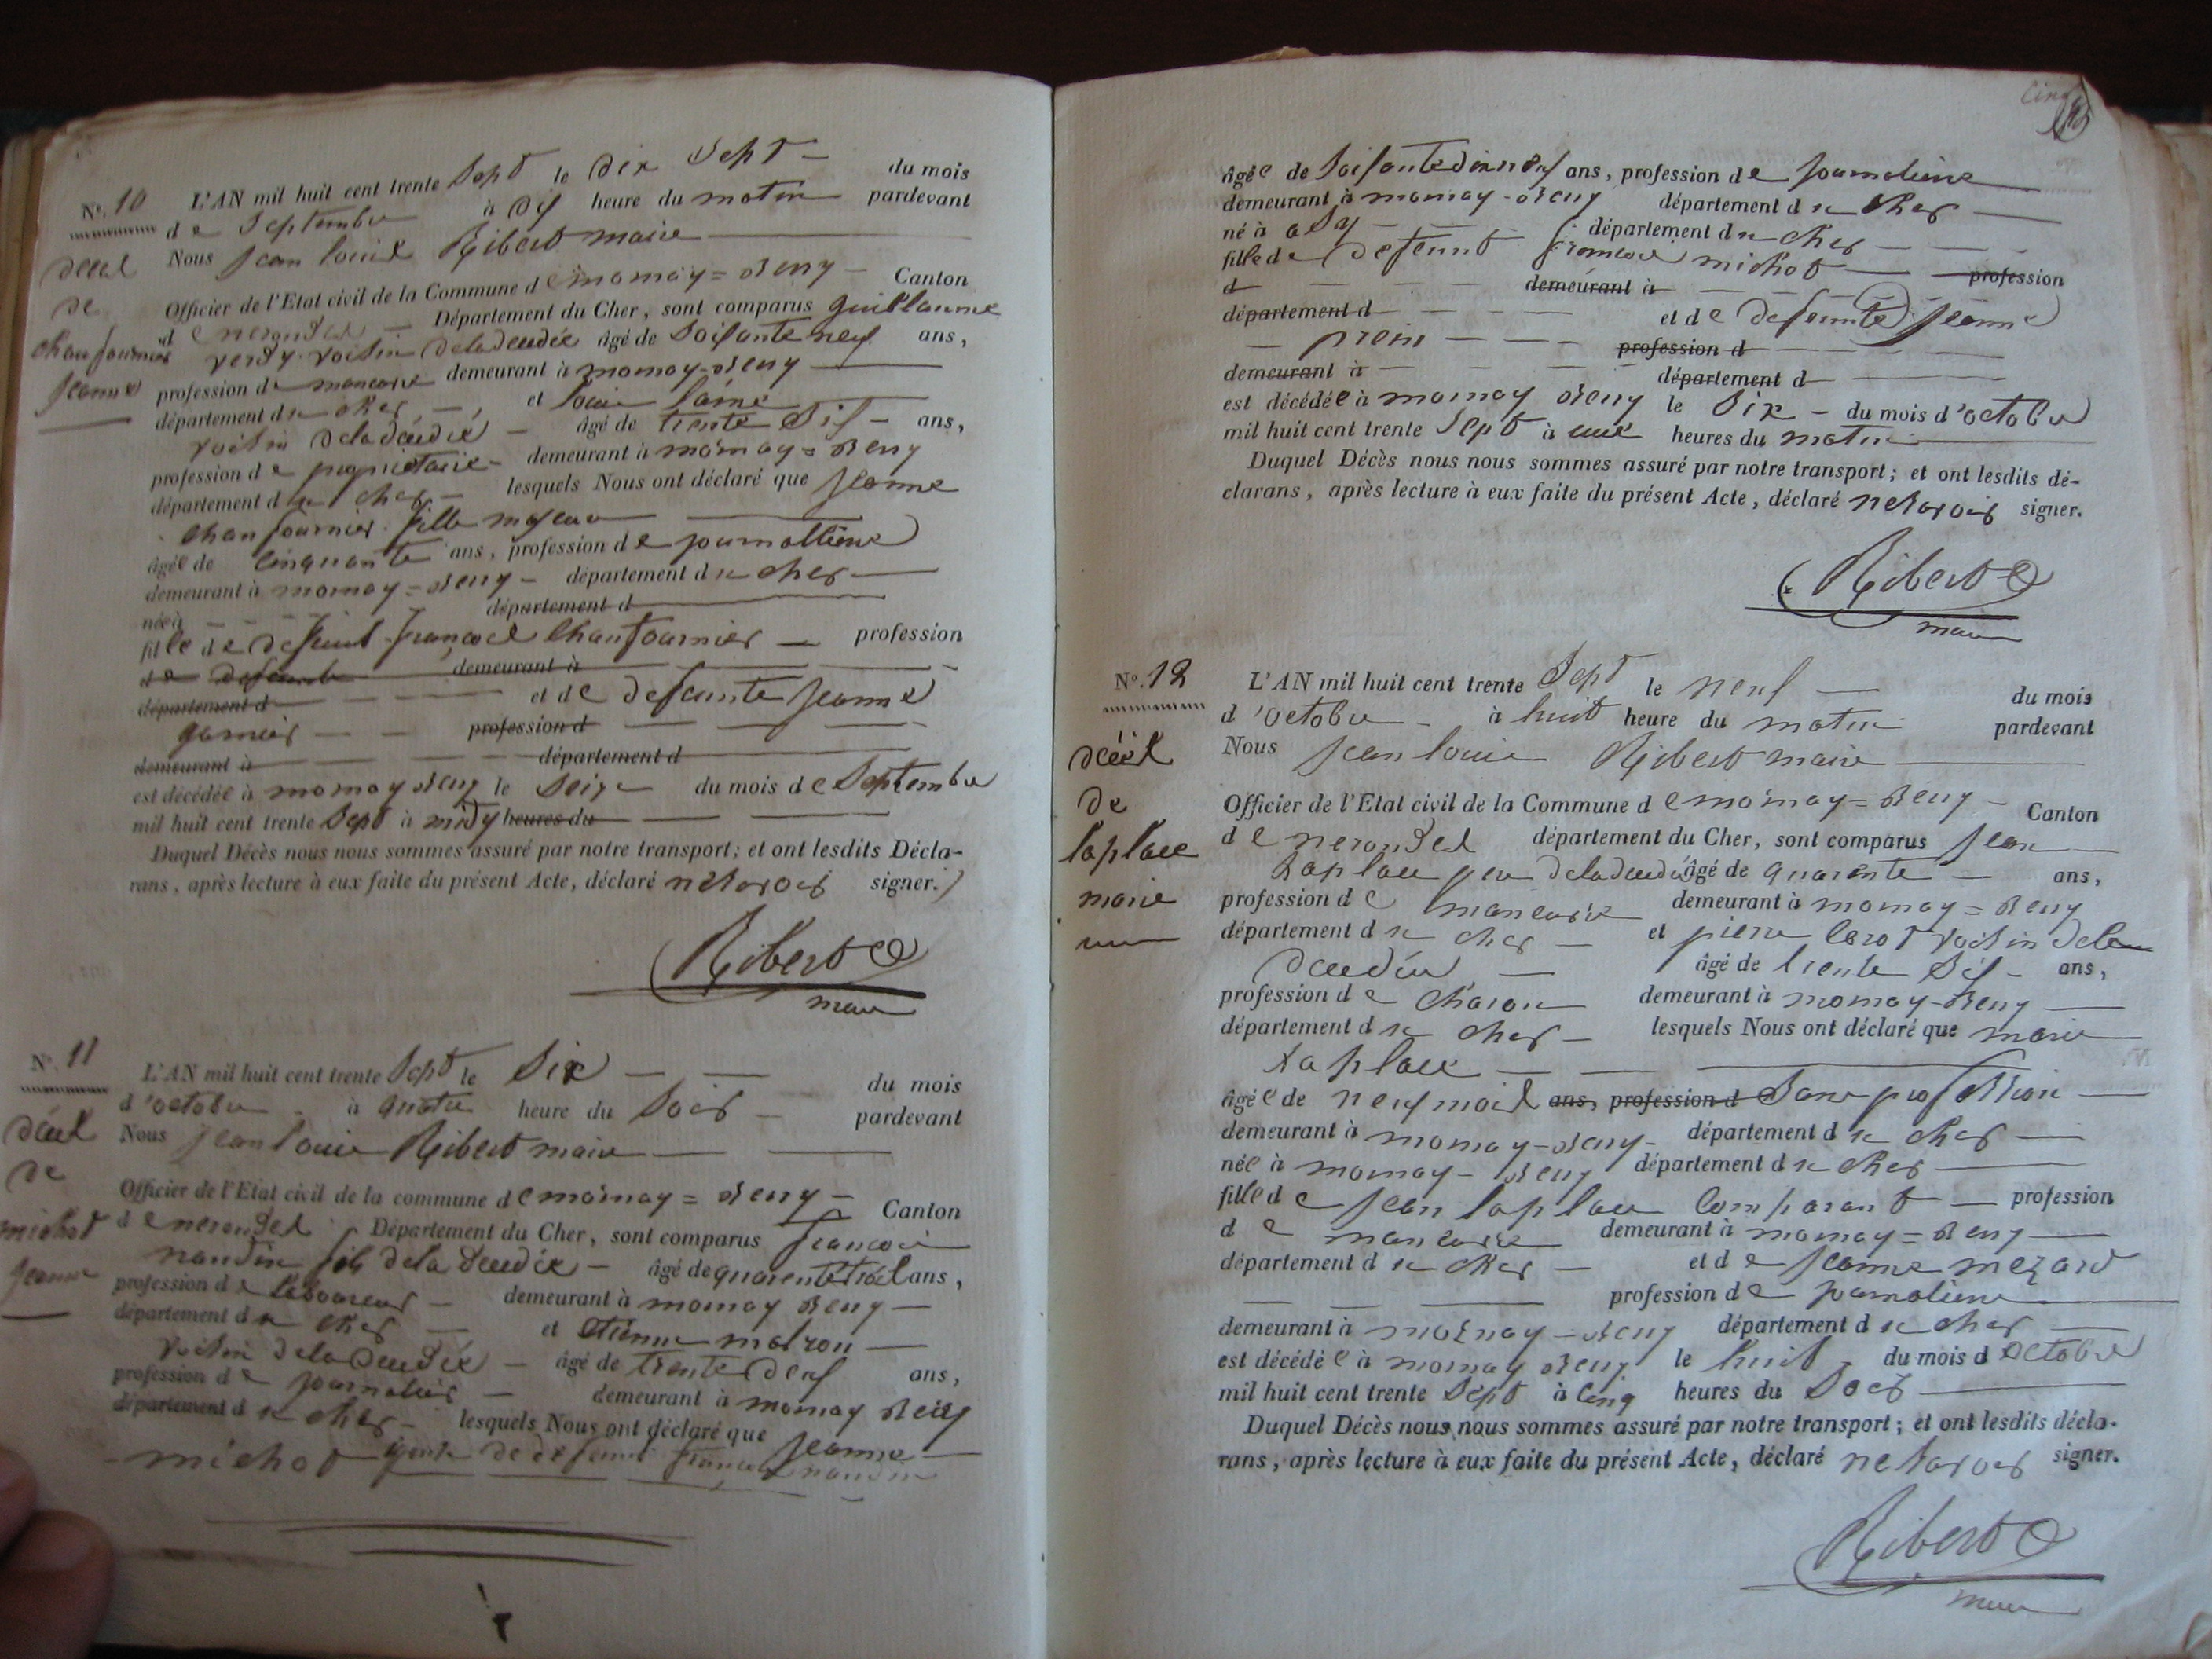 N°. 10
décel
de
chanfournier
jeanne
L'AN mil huit cent trente Sept le dix Sept du mois
de Septembre à dis heure du matin pardevant
Nous jean louis Ribert maire
Officier de l'Etat civil de la Commune de mornay = Beny Canton
de nerondel Département du Cher, sont comparus guillaume
verdy voisin dela décédée âgé de Soisante neuf ans,
profession de maneuvre demeurant à mornay-Beny
département du cher et louis lainé
voisin dela décédée âgé de trente Sis ans,
profession de propriétaire demeurant à mornay = Beny
département du cher lesquels Nous ont déclaré que jeanne
chanfournier fille majeure
âgée de cinquante ans, profession de journalliere
demeurant à mornay = Beny département du cher
née à département d
fille de defunt françoel chanfournier profession
de demeurant à
département d et de defunte jeanne
garnier profession d
demeurant à département d
est décédée à mornay Beny le Seize du mois de Septembre
mil huit cent trente Sept à midy heures du
Duquel Décès nous nous sommes assuré par notre transport; et ont lesdits Décla-
rans, après lecture à eux faite du présent Acte, déclaré ne savoir signer.
Ribert
maire
N°. 11
décel
de
michot
jeanne
L'AN mil huit cent trente Sept le Six du mois
d'octobre à quatre heure du Soir pardevant
Nous jean louis Ribert maire
Officier de l'Etat civil de la commune de mornay = Beny Canton
de nerondel Département du Cher, sont comparus françois
naudin fils dela décédée âgé de quarente trois ans,
profession de laboureur demeurant à mornay Beny
département du cher et etienne
voisin dela décédée âgé de trente deus ans,
profession de journalier demeurant à mornay Beny
département du cher lesquels Nous ont déclaré que jeanne
michot de defunt françois naudin
cinq
âgée de Soisante dix neuf ans, profession de journaliere
demeurant à mornay-Beny département du cher
né à département du cher
fille de defeunt françois michot profession
d demeurant à
département d et de defeunte jeanne
profession d
demeurant à département d
est décédée à mornay Beny le Six du mois d'octobre
mil huit cent trente Sept à une heures du matin
Duquel Décès nous nous sommes assuré par notre transport; et ont lesdits dé-
clarans, après lecture à eux faite du présent Acte, déclaré ne savoir signer.
Ribert
maire
N°. 12
décél
de
laplace
marie
L'AN mil huit cent trente Sept le neuf du mois
d'octobre à huit heure du matin pardevant
Nous jean louis Ribert maire
Officier de l'Etat civil de la Commune de mornay = Beny Canton
de nerondel département du Cher, sont comparus jean
Laplace pere dela décédée âgé de quarente ans,
profession de maneuvre demeurant à mornay = Beny
département du cher et pierre voisin dela
décédée âgé de trente Sis ans,
profession de charon demeurant à mornay-Beny
département du cher lesquels Nous ont déclaré que marie
Laplace
âgée de neuf mois ans, profession d Sans profession
demeurant à mornay-Beny département du cher
née à mornay-Beny département du cher
fille de jean laplace comparant profession
de maneuvre demeurant à mornay = Beny
département du cher et de jeanne mezard
profession de journaliere
demeurant à mornay = Beny département du cher
est décédée à mornay Beny le huit du mois d octobre
mil huit cent trente Sept à cinq heures du Soir
Duquel Décès nous nous sommes assuré par notre transport; et ont lesdits décla-
rans, après lecture à eux faite du présent Acte, déclaré ne savoir signer.
Ribert
maire